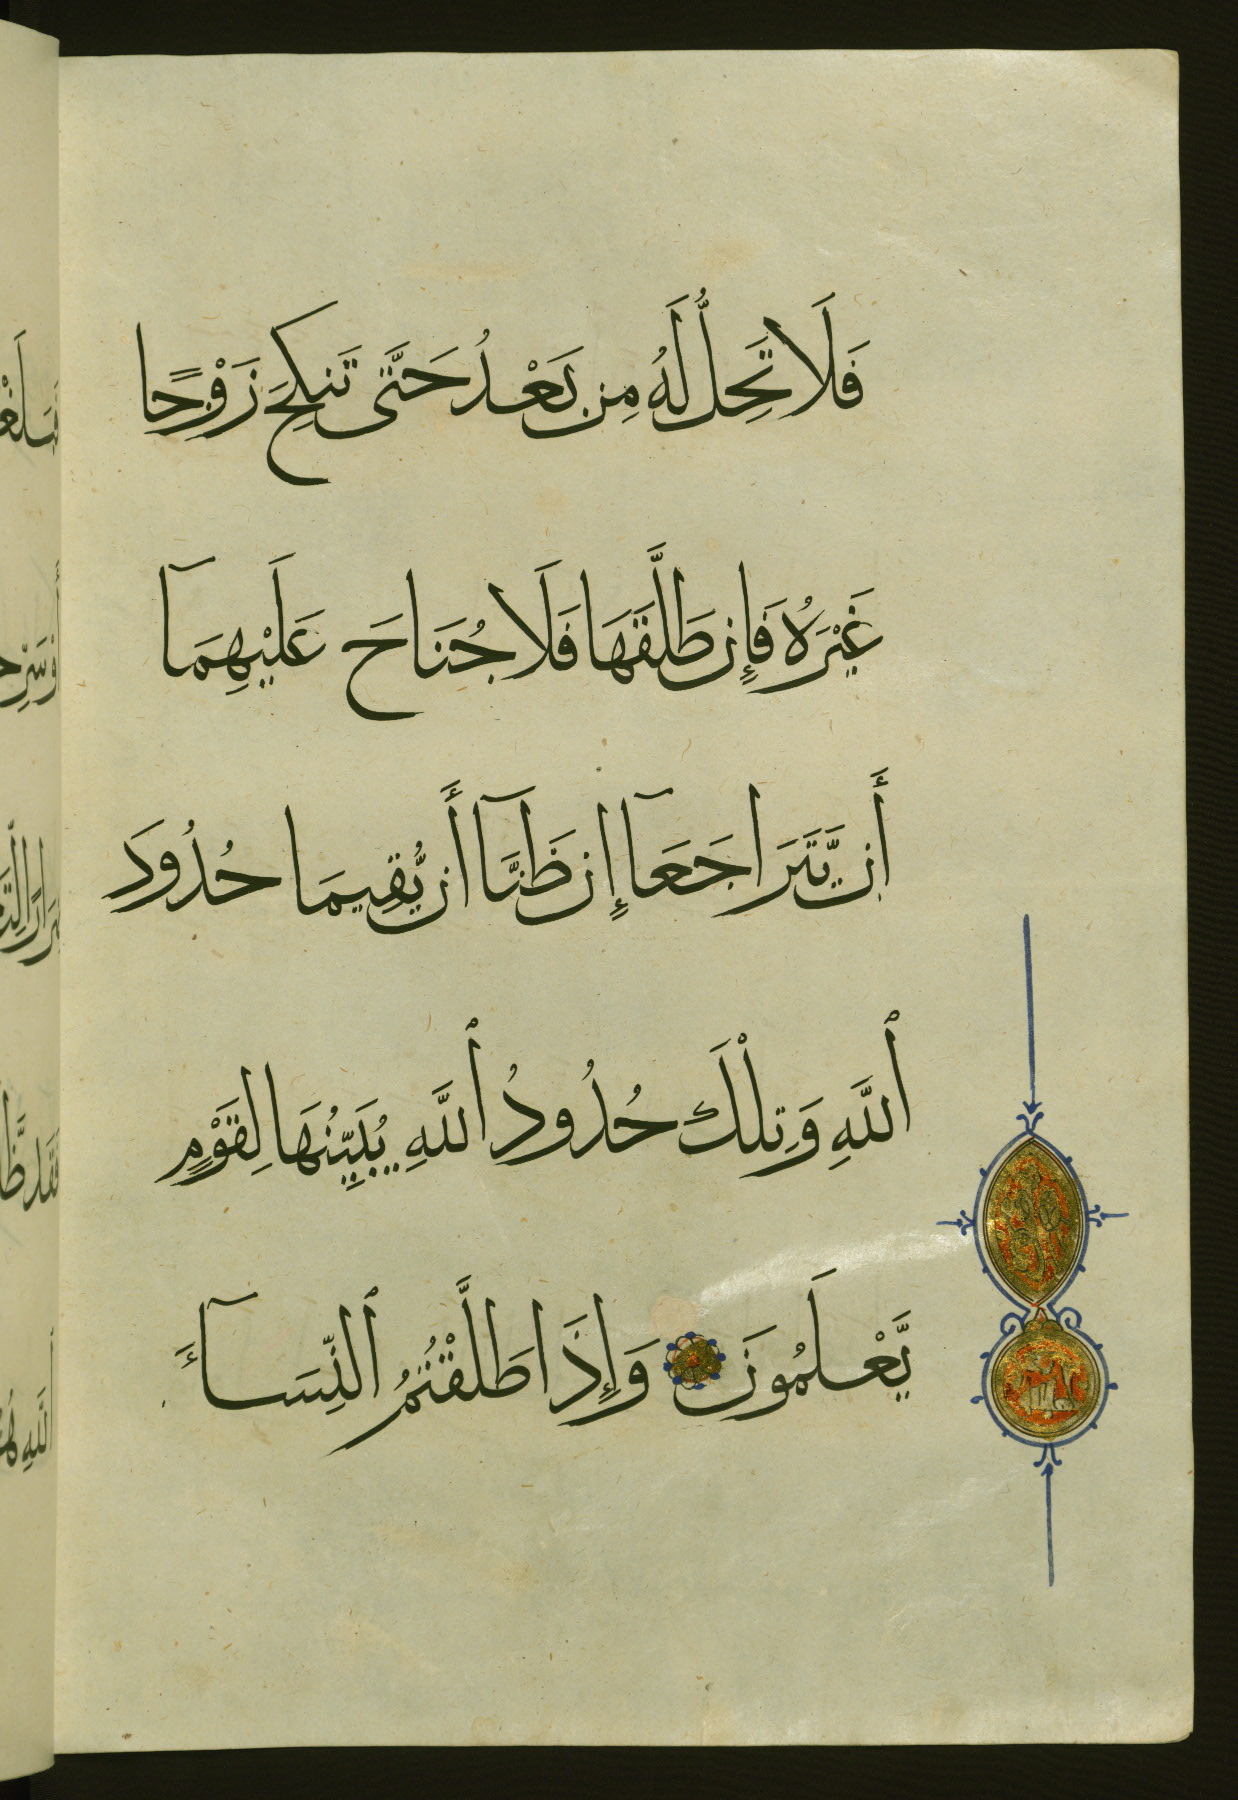 فَلَا تَحِلُّ لَهُ مِن بَعْدُ حَتَّى تَنكِحَ زَوْجًا
غَيْرَهُ فَإِن طَلَّقَهَا فَلَا جُنَاحَ عَلَيْهِمَآ
أَن يَّتَرَاجَعَآ إِن ظَنَّآ أَن يُّقِيمَا حُدُودَ
ٱللَّهِ وَتِلْكَ حُدُودُ ٱللَّهِ يُبَيِّنُهَا لِقَوْمٍ
يَّعْلَمُونَ وَإِذَا طَلَّقْتُمُ ٱلنِّسَآءَ